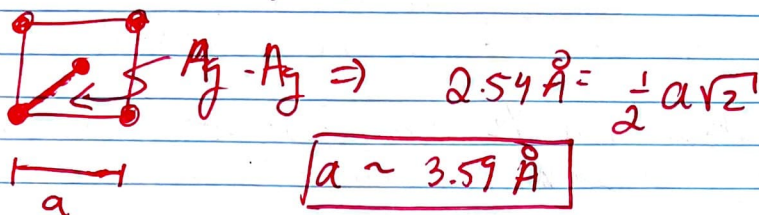 Ag - Ag ⇒ 2.54 Å = ½ a√2
a ~ 3.59 Å
a